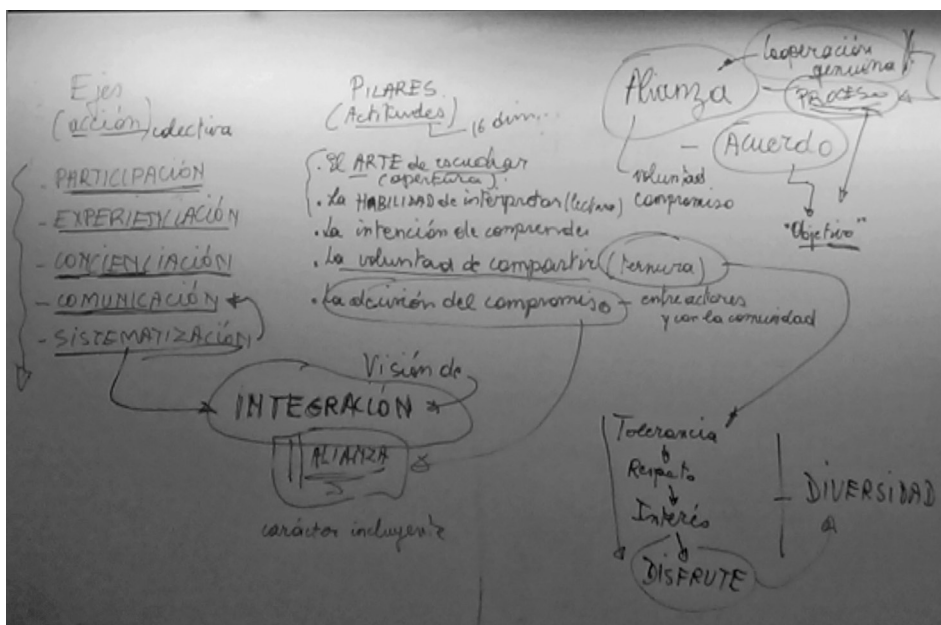 Ejes
(acción) colectiva
- PARTICIPACIÓN
- EXPERIENCIACIÓN
- CONCIENCIACIÓN
- COMUNICACIÓN
- SISTEMATIZACIÓN
PILARES
(Actitudes)
16 dim...
. El ARTE de escuchar
(apertura)
. La HABILIDAD de interpretar (lectura)
. La intención de comprender
. La voluntad de compartir (ternura)
. La decisión del compromiso - entre actores
y con la comunidad
Visión de
INTEGRACIÓN
ALIANZA
carácter incluyente
Cooperación
genuina
Alianza - PROCESO
- Acuerdo
voluntad
compromiso
"Objetivo"
Tolerancia
Respeto
Interés
DISFRUTE
DIVERSIDAD